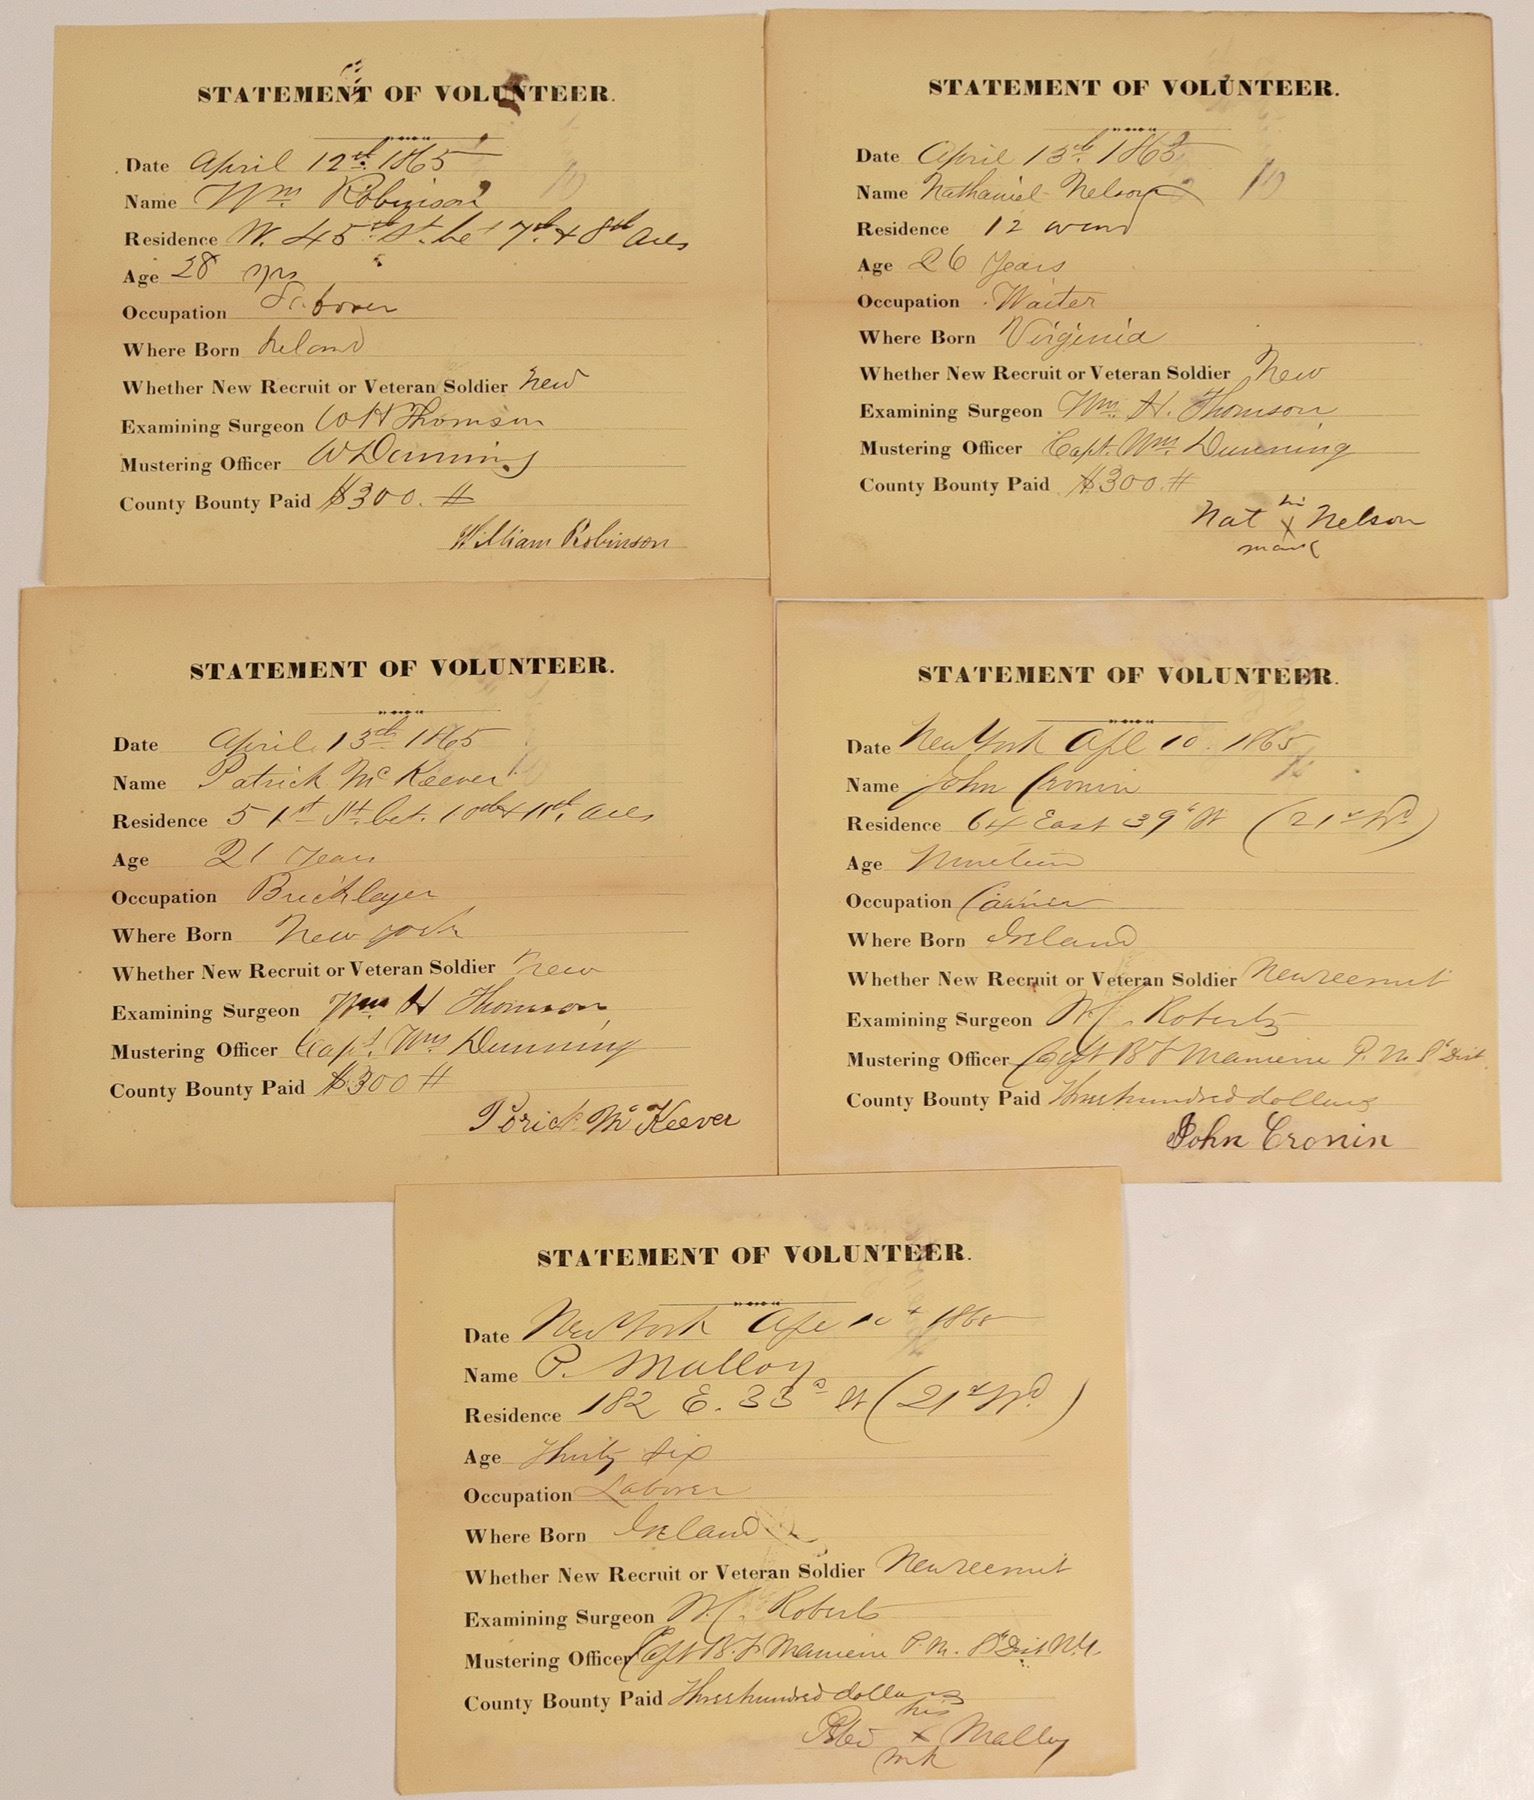 STATEMENT OF VOLUNTEER.
Date April 12th 1865
Name Wm Robinson
Residence W. 45th St. bet 7th & 8th Aves
Age 28 yrs
Occupation Laborer
Where Born Ireland
Whether New Recruit or Veteran Soldier New
Examining Surgeon W H Thomson
Mustering Officer W Dunning
County Bounty Paid $300.#
William Robinson
STATEMENT OF VOLUNTEER.
Date April 13th 1865
Name Nathaniel Nelson
Residence 12 Ward
Age 26 Years
Occupation Waiter
Where Born Virginia
Whether New Recruit or Veteran Soldier New
Examining Surgeon Wm. H. Thomson
Mustering Officer Capt. Wm Dunning
County Bounty Paid $300.#
his
Nat X Nelson
mark
STATEMENT OF VOLUNTEER.
Date April 13th 1865
Name Patrick McKeever
Residence 51st St. bet. 10th & 11th Aves
Age 21 Years
Occupation Bricklayer
Where Born New York
Whether New Recruit or Veteran Soldier New
Examining Surgeon Wm H Thomson
Mustering Officer Capt. Wm Dunning
County Bounty Paid $300 #
McKeever
STATEMENT OF VOLUNTEER.
Date New York Apl 10. 1865
Name John Cronin
Residence 64 East 39th St (21st Wd)
Age Nineteen
Occupation
Where Born Ireland
Whether New Recruit or Veteran Soldier New recruit
Examining Surgeon W.C. Roberts
Mustering Officer Capt B F Manierre P. M. 8th Dist.
County Bounty Paid Three hundred dollars
John Cronin
STATEMENT OF VOLUNTEER.
Date New York Apl 10th 1865
Name P. Malloy
Residence 182 E. 33d St (21st Wd)
Age Thirty six
Occupation Laborer
Where Born Ireland
Whether New Recruit or Veteran Soldier New recruit
Examining Surgeon W.C. Roberts
Mustering Officer Capt B. F Manierre P. M. 8th Dist N.Y.
County Bounty Paid Three hundred dollars
his
X Malloy
mk